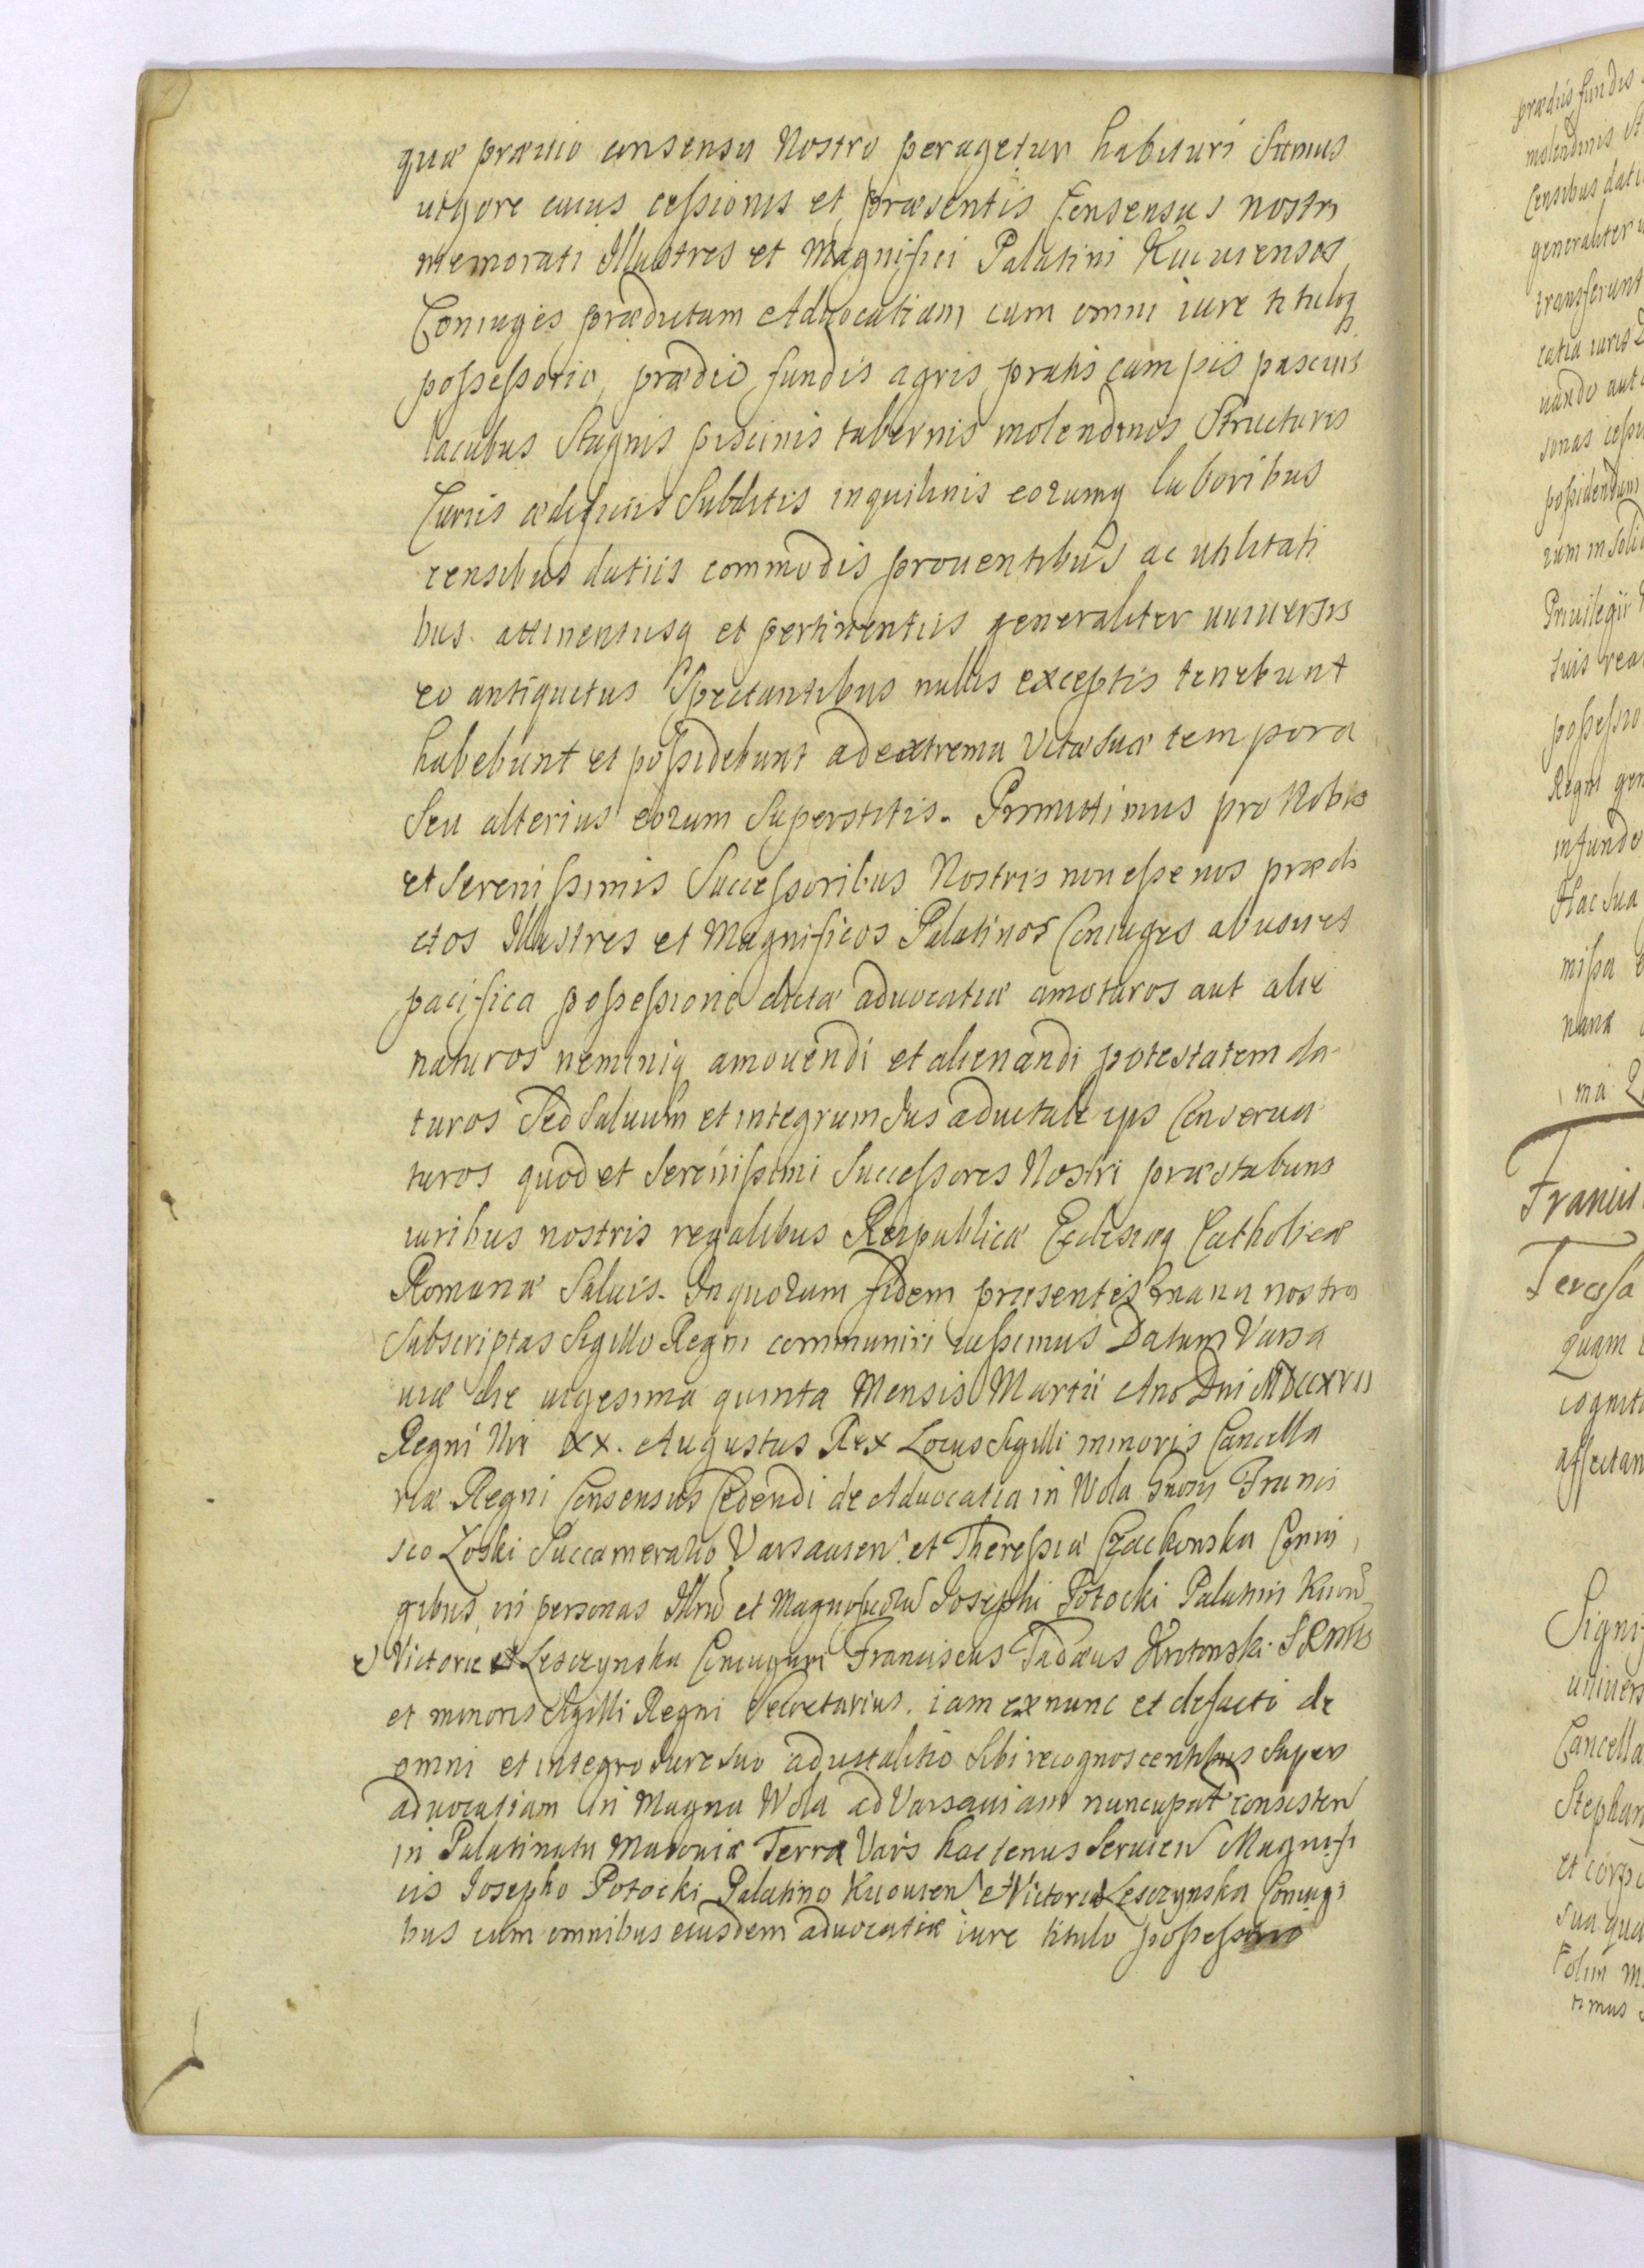 quæ præuio consensu Nostro peragetur habituri Sumus
uigore cuius cessionis et præsentis Consensus nostri
memorati Illustres et Magnifici Palatini Kiiouienses
Coniuges prædictam Aduocatiam cum omni iure tituloq
possessorio, prædio fundis agris pratis campis pascuis
lacubus Stagnis piscinis tabernis molendinis Structuris
Curiis ædificiis Subditis inquilinis eorumq laboribus
censibus datiis commodis prouentibus ac utilitati
bus attinentiisq et pertinentiis generaliter uniuersis
eo antiquitus Spectantibus nullis exceptis tenebunt
habebunt et possidebunt ad extrema Vitæ suæ tempora
Seu alterius eorum Superstitis. Promittimus pro Nobis
et Serenissimis Successoribus Nostris non esse nos prædi
ctos Illustres et Magnificos Palatinos Coniuges ab usu et
pacifica possessione dictæ aduocatiæ amoturos aut alie
naturos neminiq amouendi et alienandi potestatem da
turos Sed Saluum et integrum Jus aduitale ijs Conserua
turos quod et Serenissimi Successores Nostri præstabunt
iuribus nostris regalibus Reipublicæ Ecclesiæq Catholicæ
Romanæ Saluis. In quorum fidem præsentes manu nostra
Subscriptas Sigillo Regni communiri iussimus Datum Varsa
uiæ die uigesima quinta Mensis Martii Ano Dni MDCCXVII
Regni Nri XX. Augustus Rex Locus Sigilli minoris Cancella
riæ Regni Consensus Cedendi de Aduocatia in Wola Gnosis Franci
sco Zoski Succamerario Varsauien et Theressiæ Czackonska Coniu
gibus in personas Illriũ et Magnificorũ Josephi Potocki Palatini Kiiou
et Victoriæ Lesczynska Coniugum Franciscus Tadæus SRMtis
et minoris Sigilli Regni Secretarius. iam ex nunc et de facto de
omni et integro Jure suo aduitalitio Sibi recognoscentibus Super
aduocatiam in Magna Wola ad Varsauiam nuncupat consisten
in Palatinatu Masouiæ Terra Vars hactenus Seruien Magnifi
cis Josepho Potocki Palatino Kiiouien et Victoriæ Lesczynska Coniugi
bus cum omnibus eiusdem aduocatiæ iure titulo possessorio
prædiis fundis
molendinis
Censibus datii
generaliter
transferunt
catia iuris
uando aut
sonas cessi
possidendam
rum in Soli
Priuilegii
suis rea
possessio
Regni gen
in fundo
Hac sua
missa
nanæ
ma
Francis
Teressa
quam
cognita
affectan
Signi
uniuers
Cancella
Stephan
et corp
sua qua
Colim
timus